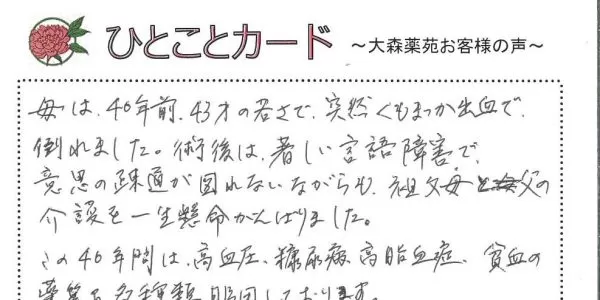 ひとことカード ～大森薬苑お客様の声～
母は、40年前、43才の若さで、突然くもまっか出血で、
倒れました。術後は、著しい言語障害で、
意思の疎通が図れないながらも、祖父母父の
介護を一生懸命がんばりました。
この40年間は、高血圧、糖尿病、高脂血症、貧血の
薬等を各種類服用しております。